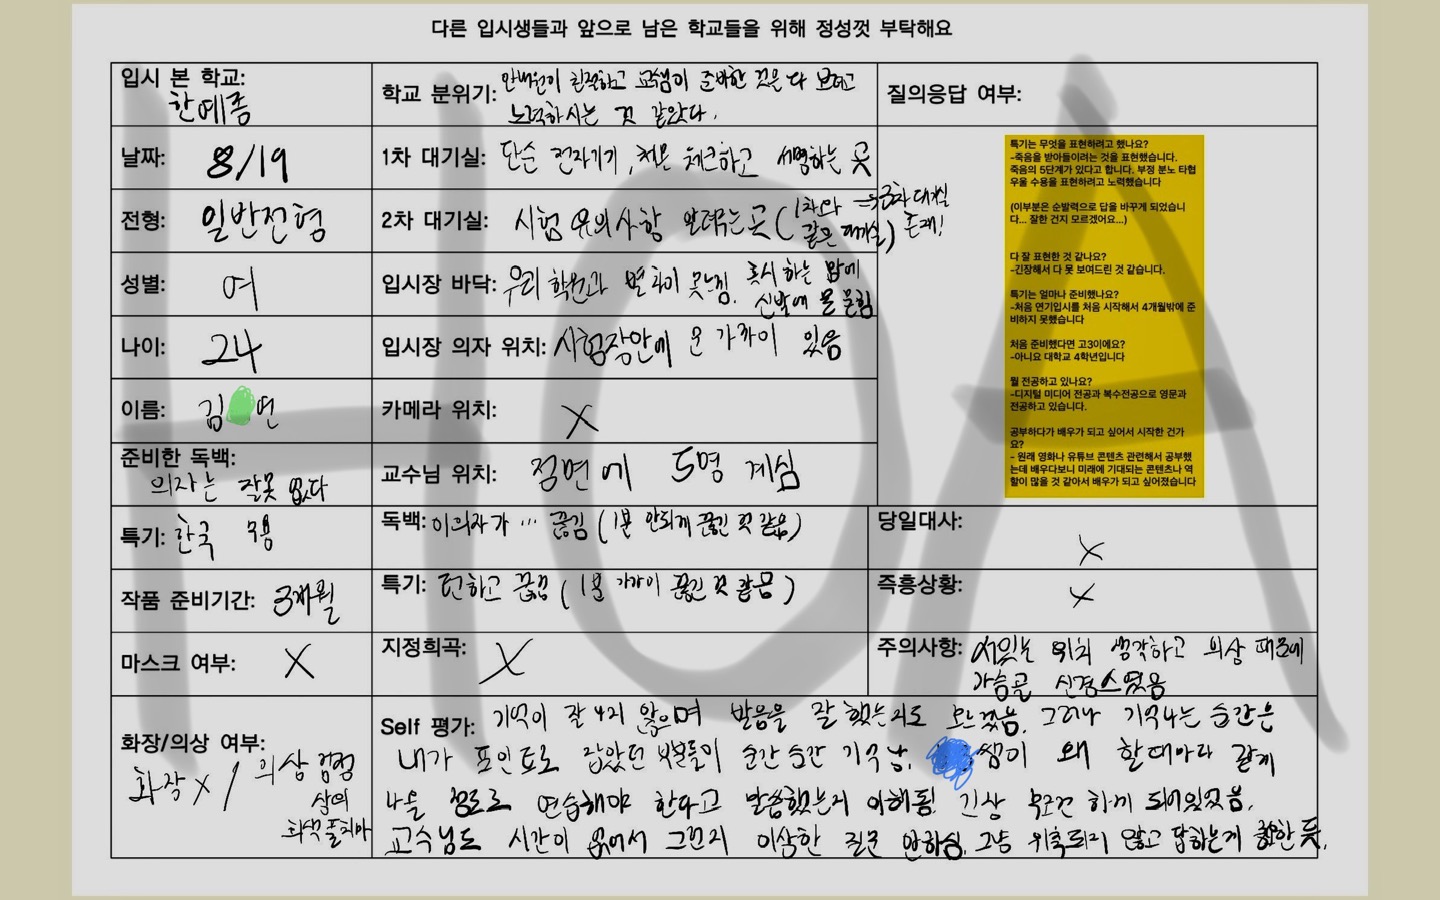 다른 입시생들과 앞으로 남은 학교들을 위해 정성껏 부탁해요
입시 본 학교:
한예종
학교 분위기: 안내원이 친절하고 교수님이 준비한 것은 다 보려고
노력하시는 것 같았다.
질의응답 여부:
날짜: 8/19
1차 대기실: 단순 전자기기, 체크하고 설명하는 곳
전형: 일반전형
2차 대기실: 시험 유의사항 알려주는 곳 (1차와 → 3차 대기실
같은 대기실) 존재!
성별: 여
입시장 바닥: 우리 학원과 별 차이 못느낌. 혹시 하는 맘에
신발에 물 묻힘
나이: 24
입시장 의자 위치: 시험장안에 문 가까이 있음
이름: 김 연
카메라 위치: X
준비한 독백:
의자는 잘못 없다
교수님 위치: 정면에 5명 계심
특기는 무엇을 표현하려고 했나요?
-죽음을 받아들이려는 것을 표현했습니다.
죽음의 5단계가 있다고 합니다. 부정 분노 타협
우울 수용을 표현하려고 노력했습니다
(이부분은 순발력으로 답을 바꾸게 되었습니
다... 잘한 건지 모르겠어요...)
다 잘 표현한 것 같나요?
-긴장해서 다 못 보여드린 것 같습니다.
특기는 얼마나 준비했나요?
-처음 연기입시를 처음 시작해서 4개월밖에 준
비하지 못했습니다
처음 준비했다면 고3이에요?
-아니요 대학교 4학년입니다
뭘 전공하고 있나요?
-디지털 미디어 전공과 복수전공으로 영문과
전공하고 있습니다.
공부하다가 배우가 되고 싶어서 시작한 건가
요?
- 원래 영화나 유튜브 콘텐츠 관련해서 공부했
는데 배우다보니 미래에 기대되는 콘텐츠나 역
할이 많을 것 같아서 배우가 되고 싶어졌습니다
특기: 한국 무용
독백: 이 의자가 ... 끊김 (1분 안되게 끊긴 것 같음)
당일대사: X
작품 준비기간: 3개월
특기: 턴하고 끊김 (1분 가까이 끊긴 것 같음)
즉흥상황: X
마스크 여부: X
지정희곡: X
주의사항: 서있는 위치 생각하고 의상 때문에
가슴골 신경쓰였음
화장/의상 여부:
화장 X / 의상 검정
상의
회색 풀치마
Self 평가: 기억이 잘 나지 않으며 발음을 잘 했는지도 모르겠음. 그러나 기억나는 순간은
내가 포인트로 잡았던 부분들이 순간 순간 기억남. 쌤이 왜 할때마다 같게
나올 정도로 연습해야 한다고 말씀했는지 이해됨. 긴장 무조건 하게 되어있었음.
교수님도 시간이 없어서 그런지 이상한 질문 안하심. 그냥 위축되지 않고 답하는게 중요한 듯.
HOA